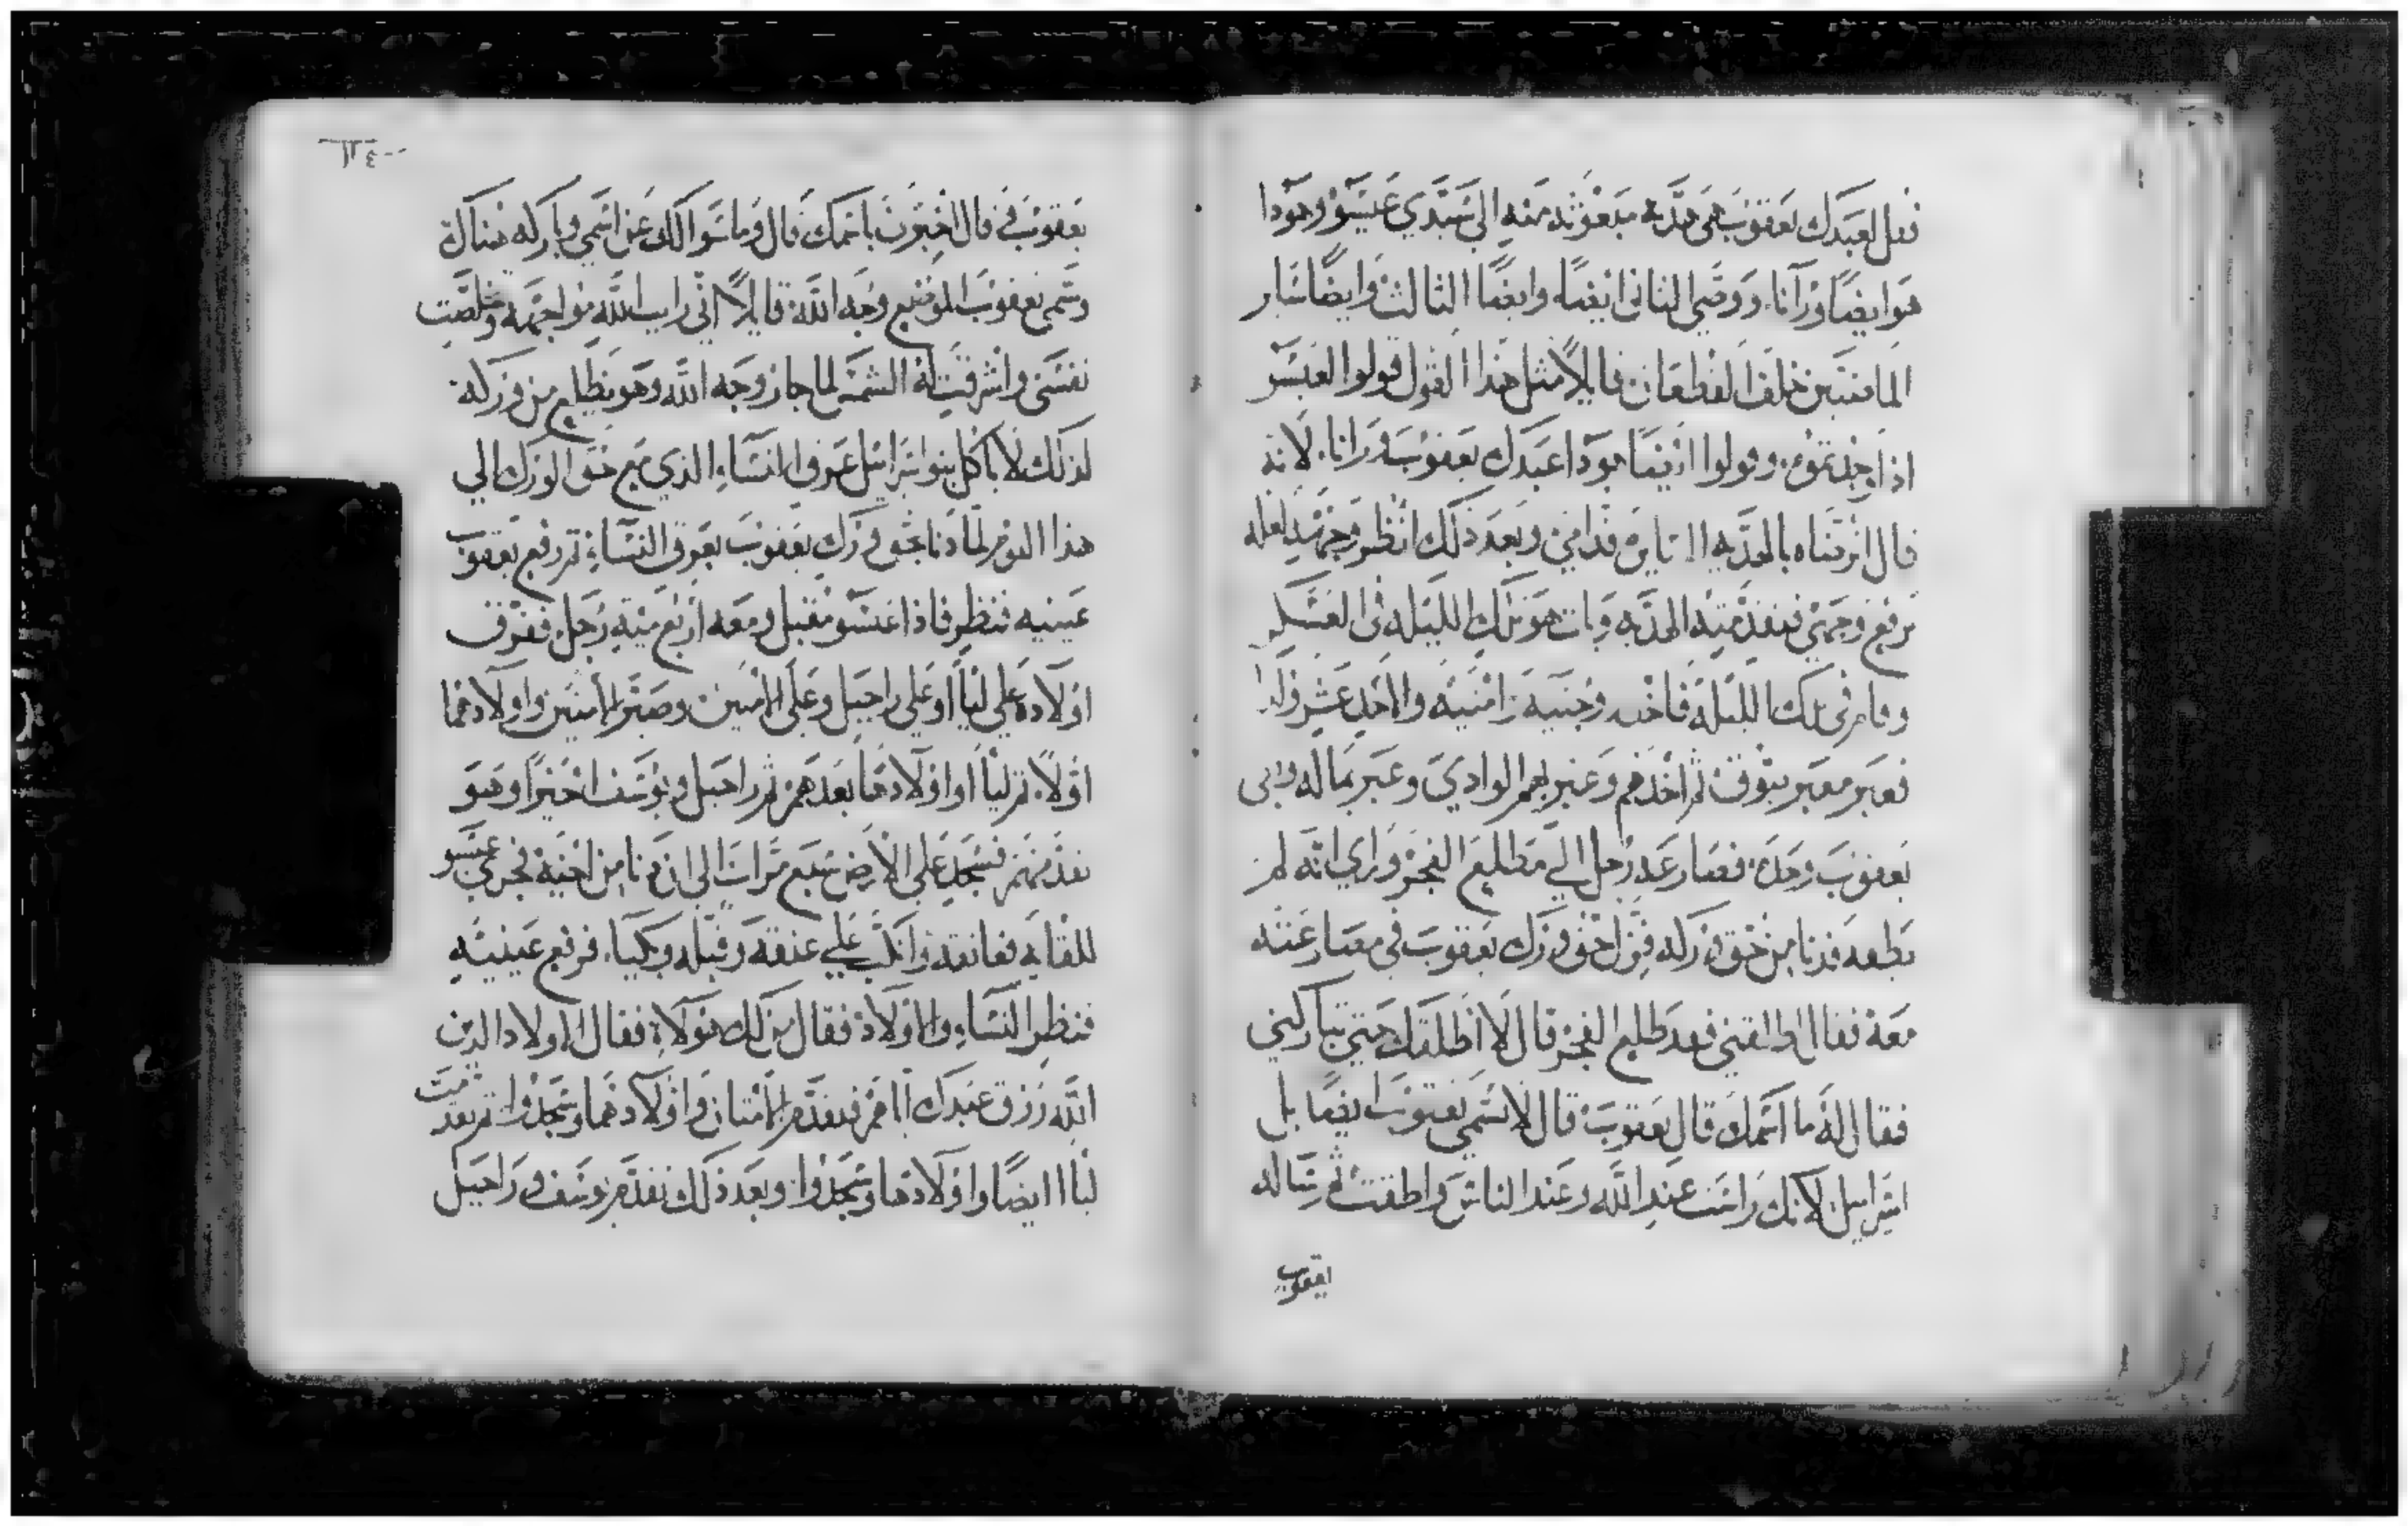 فقل لعبدك يعقوب هى هديه مبعوثه منه الى سيدي عيسو وهوذا
هو ايضًا ورآنا. ووصى الثانى ايضا. وايضًا الثالث وايضًا سار
الماضيين خلف القطعان قايلاً مثل هذا القول قولوا لعيسو
اذا وجدتموه. وقولوا ايضًا هوذا عبدك يعقوب ورانا. لانه
قال انرضاه بالهديه السايره قدامي وبعد ذلك انظر وجهه لعله
يرفع وجهي فتقدمته الهديه وبات هو تلك الليله فى العسكر
وقام فى تلك الليله فاخد زوجتيه وامتيه والاحد عشر ولدا
فعبر معبر يبوق ثم اخدهم وعبر بهم الوادي وعبر بماله وبقى
يعقوب وحده. فصارعه رجل الي مطلع الفجر وراي انه لم
يطعه فدنا من حق وركه فزال حق ورك يعقوب فى مصارعته
معه فقال اطلقني فقد طلع الفجر قال لا اطلقك حتي تباركني
فقال له ما اسمك قال يعقوب قال لا يسمي يعقوب ايضًا بل
اسراييل لانك راست عند الله وعند الناس واطقت ثم ساله
يعقوب
١١٤
يعقوب فى قال اخبرنى باسمك قال وما سوالك عن اسمي وباركه هناك
وسمى يعقوب الموضع وجه الله قايلاً انى رايت الله مواجهه وخلصت
نفسى واشرقت له الشمس لما جاز وجه الله وهو يظلع من وركه
لذلك لا ياكل بنو اسراييل عرق النساء الذي مع حق الورك الي
هذا اليوم لما دنا بحق ورك يعقوب بعرق النساء ثم رفع يعقوب
عينيه فنظر فاذا عيسو مقبل ومعه اربع ميه رجل ففرق
اولاده على ليا او على راحيل وعلى الامتين وصير الامتين واولادهما
اولاً. ثم ليا او اولادها بعدهم ثم راحيل ويوسف اخيرًا وهو
تقدمهم فسجد على الارض سبع مرات الى ان دنا من اخيه فجري عيسو
للقايه فعانقه وانكب علي عنقه وقبله وبكيا. فرفع عينيه
فنظر النساء والاولاد فقال من لك هولاء فقال الاولاد الذين
الله رزق عبدك اياهم فتقدم الامتان واولادهما وسجدوا ثم تقدمت
ليا ايضًا واولادها وسجدوا. وبعد ذلك تقدم يوسف وراحيل